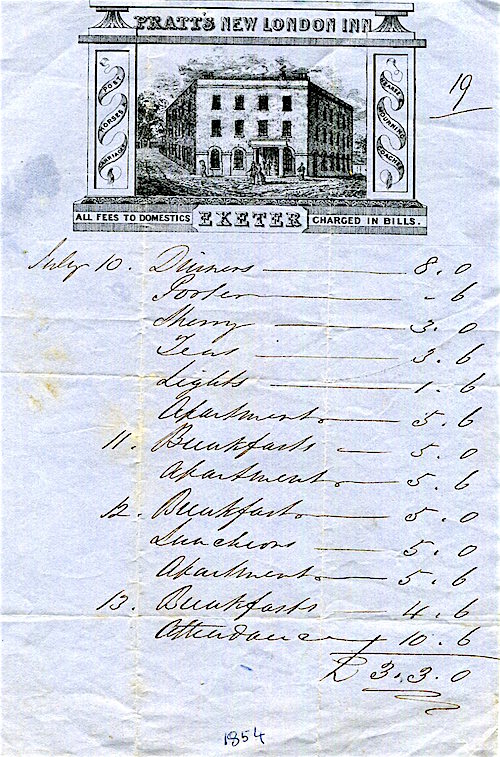 PRATT'S NEW LONDON INN
19
POST
HORSES
CARRIAGES
HEARSE
MOURNING
COACHES
ALL FEES TO DOMESTICS EXETER CHARGED IN BILLS.
July 10. Dinners 8.0
Porter - 6
Sherry 3.0
Teas 3.6
Lights 1.6
Apartments 5.6
11. Breakfasts 5.0
Apartments 5.6
12. Breakfasts 5.0
Luncheons 5.0
Apartments 5.6
13. Breakfasts 4.6
Attendance 10.6
£ 3.3.0
1854